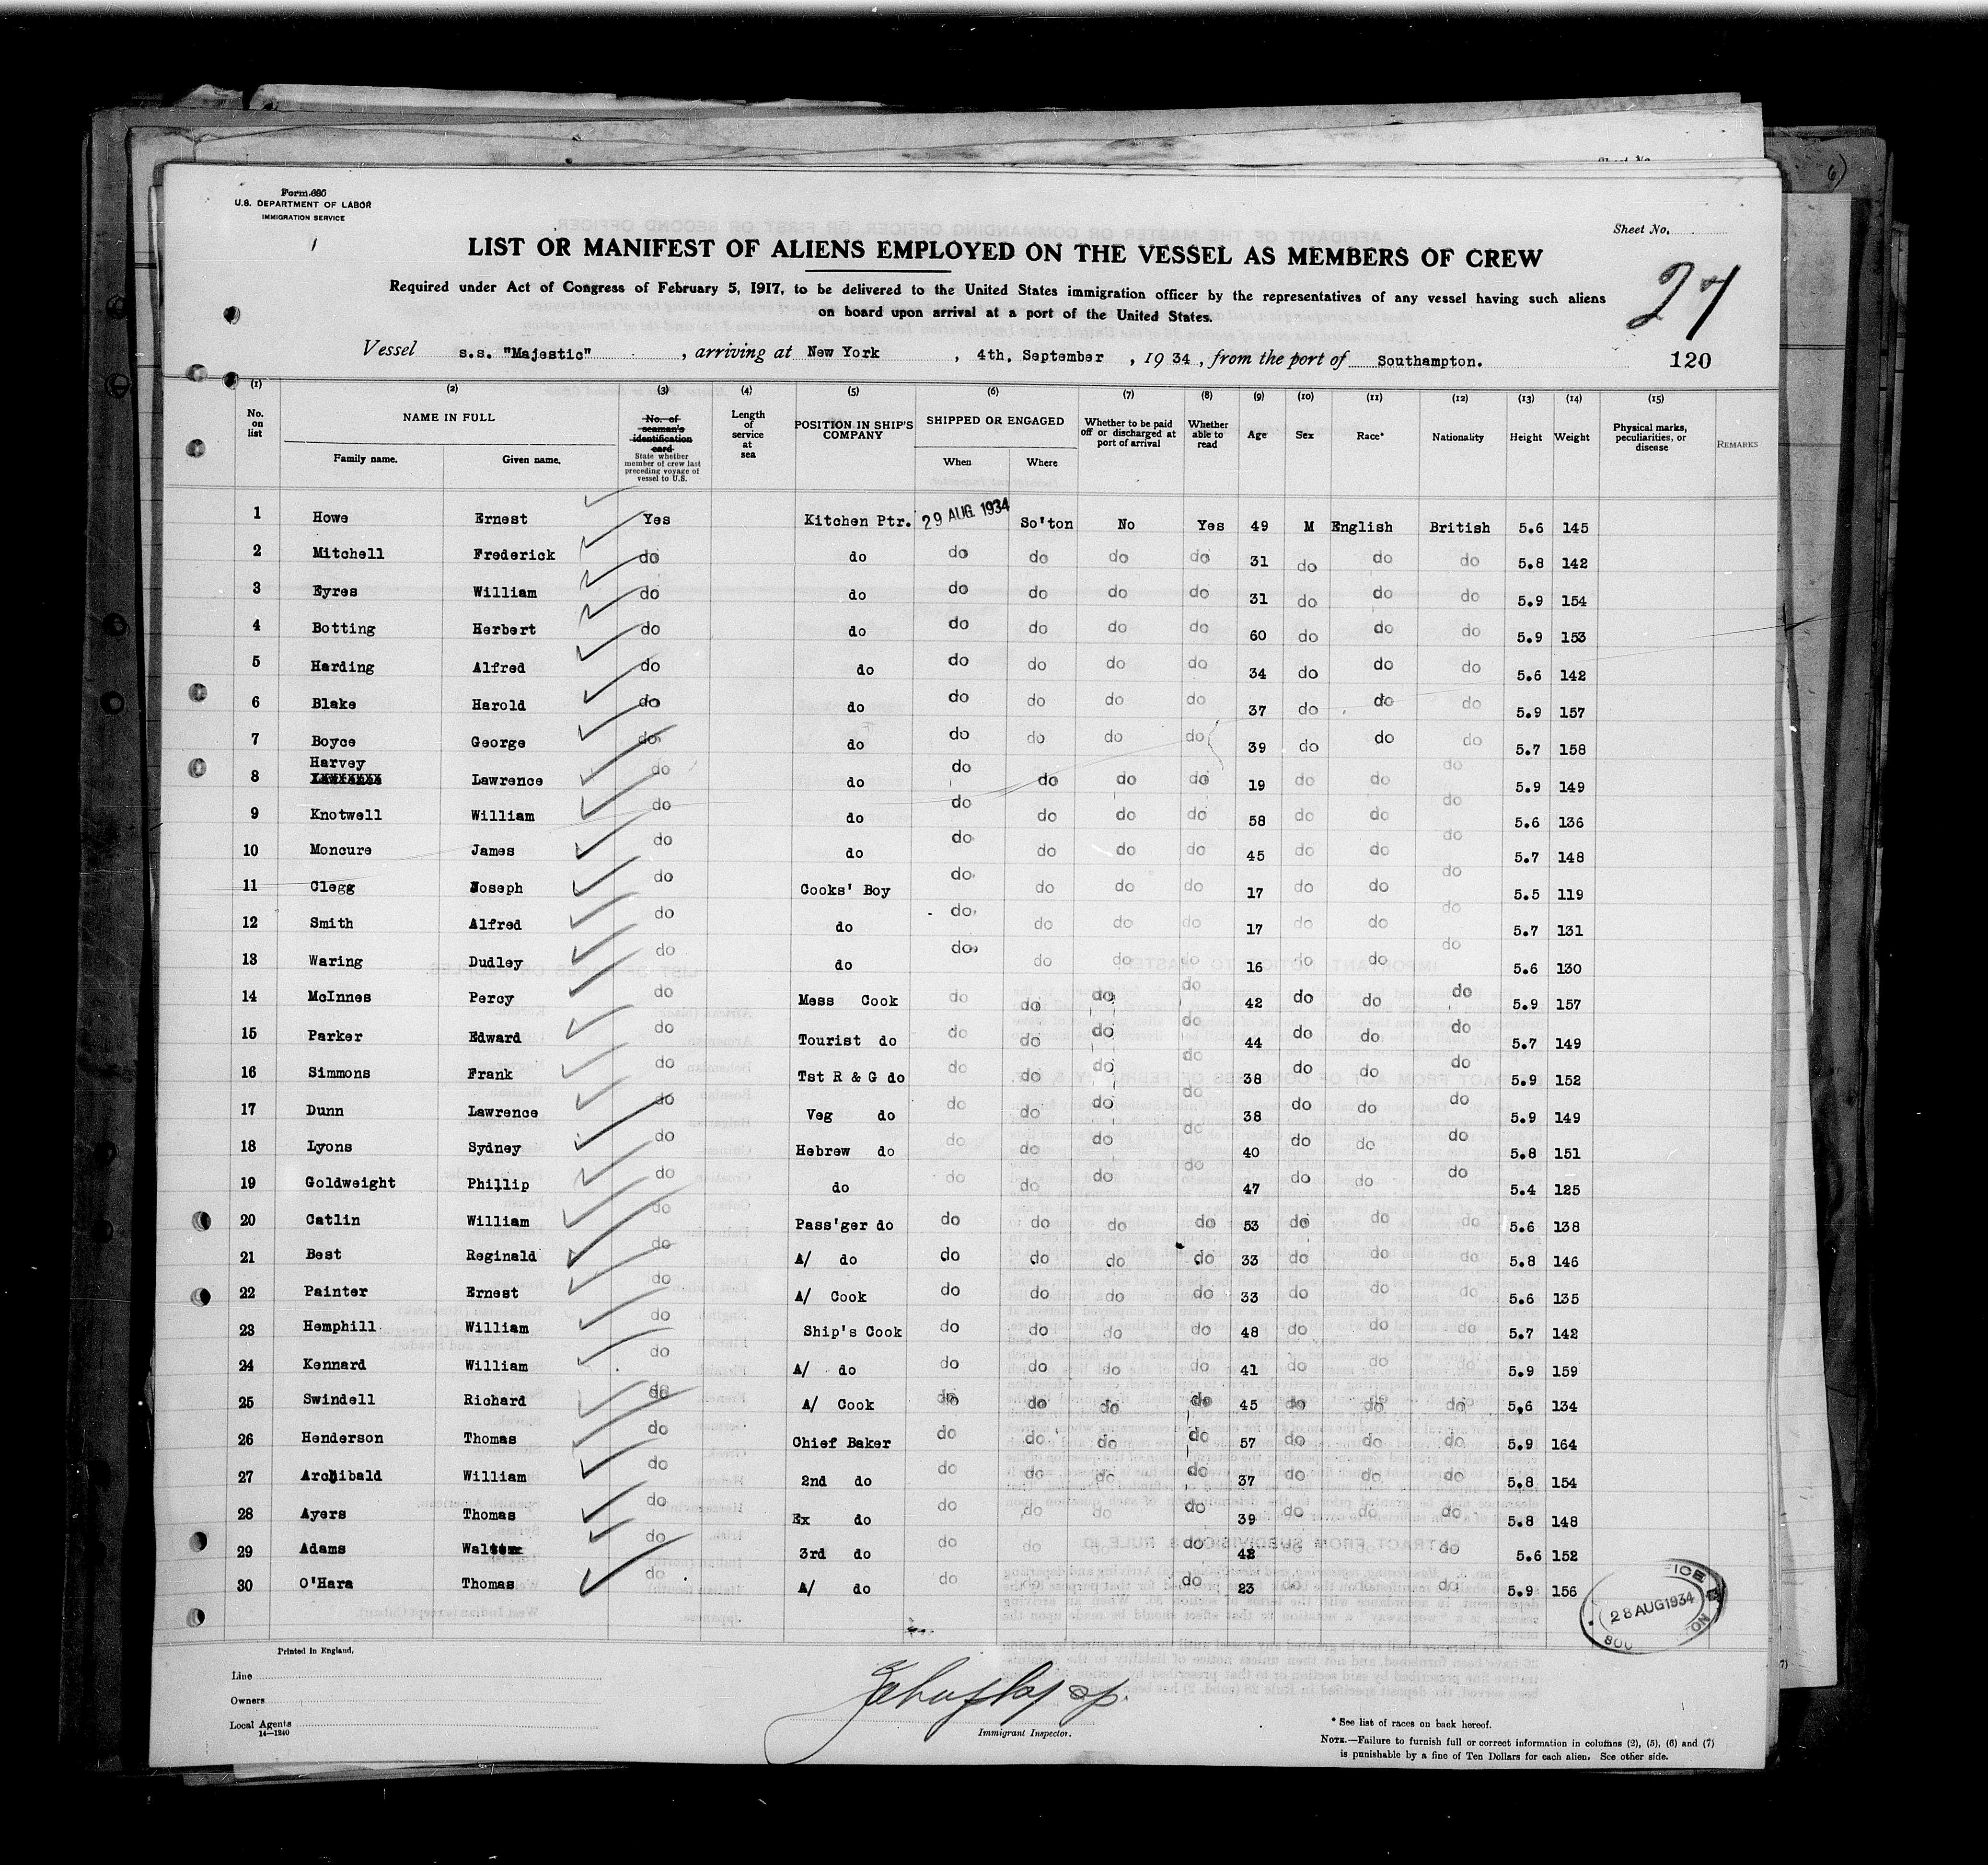 Form 680
U.S. DEPARTMENT OF LABOR
IMMIGRATION SERVICE
Sheet No.
LIST OR MANIFEST OF ALIENS EMPLOYED ON THE VESSEL AS MEMBERS OF CREW
Required under Act of Congress of February 5, 1917, to be delivered to the United States immigration officer by the representatives of any vessel having such aliens
on board upon arrival at a port of the United States.
27
Vessel s.s. "Majestic" , arriving at New York , 4th. September , 1934, from the port of Southampton.
120
(1) (2) (3) (4) (5) (6) (7) (8) (9) (10) (11) (12) (13) (14) (15)
No. on list NAME IN FULL Family name. Given name. No. of seaman's identification card State whether member of crew last preceding voyage of vessel to U.S. Length of service at sea POSITION IN SHIP'S COMPANY SHIPPED OR ENGAGED When Where Whether to be paid off or discharged at port of arrival Whether able to read Age Sex Race* Nationality Height Weight Physical marks, peculiarities, or disease REMARKS
1 Howe Ernest Yes Kitchen Ptr. 29 AUG. 1934 So'ton No Yes 49 M English British 5.6 145
2 Mitchell Frederick do do do do do do 31 do do do 5.8 142
3 Eyres William do do do do do do 31 do do do 5.9 154
4 Botting Herbert do do do do do do 60 do do do 5.9 153
5 Harding Alfred do do do do do do 34 do do do 5.6 142
6 Blake Harold do do do do do do 37 do do do 5.9 157
7 Boyce George do do do do do do 39 do do do 5.7 158
8 Harvey Lawrence do do do do do do 19 do do do 5.9 149
9 Knotwell William do do do do do do 58 do do do 5.6 136
10 Moncure James do do do do do do 45 do do do 5.7 148
11 Clegg Joseph do Cooks' Boy do do do do 17 do do do 5.5 119
12 Smith Alfred do do do do do do 17 do do do 5.7 131
13 Waring Dudley do do do do do do 16 do do do 5.6 130
14 McInnes Percy do Mess Cook do do do do 42 do do do 5.9 157
15 Parker Edward do Tourist do do do do do 44 do do do 5.7 149
16 Simmons Frank do Tst R & G do do do do do 38 do do do 5.9 152
17 Dunn Lawrence do Veg do do do do do 38 do do do 5.9 149
18 Lyons Sydney do Hebrew do do do do do 40 do do do 5.8 151
19 Goldweight Phillip do do do do do do 47 do do do 5.4 125
20 Catlin William do Pass'ger do do do do do 53 do do do 5.6 138
21 Best Reginald do A/ do do do do do 33 do do do 5.8 146
22 Painter Ernest do A/ Cook do do do do 33 do do do 5.6 135
23 Hemphill William do Ship's Cook do do do do 48 do do do 5.7 142
24 Kennard William do A/ do do do do do 41 do do do 5.9 159
25 Swindell Richard do A/ Cook do do do do 45 do do do 5.6 134
26 Henderson Thomas do Chief Baker do do do do 57 do do do 5.9 164
27 Archibald William do 2nd do do do do do 37 do do do 5.8 154
28 Ayers Thomas do Ex do do do do do 39 do do do 5.8 148
29 Adams Walter do 3rd do do do do do 42 do do do 5.6 152
30 O'Hara Thomas do A/ do do do do do 23 do do do 5.9 156
28 AUG 1934
Printed in England.
Line
Owners
Local Agents
14—1240
Immigrant Inspector.
* See list of races on back hereof.
NOTE.—Failure to furnish full or correct information in columns (2), (5), (6) and (7)
is punishable by a fine of Ten Dollars for each alien. See other side.